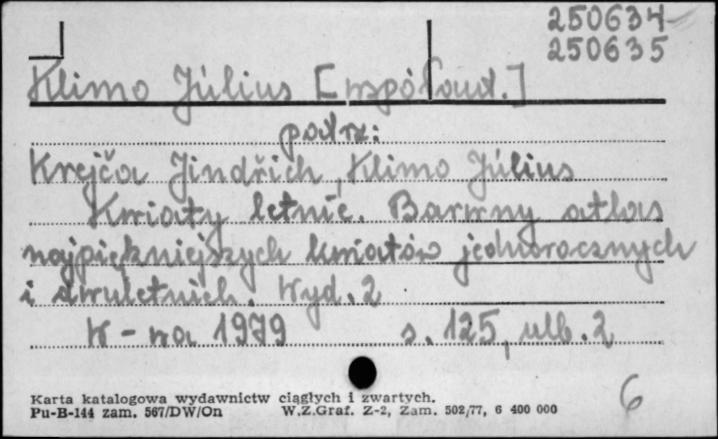 250634
250635
Klimo Július [współaut.]
patrz:
Krejča Jindřich, Klimo Július
Kwiaty letnie. Barwny atlas
najpiękniejszych kwiatów jednorocznych
i dwuletnich. Wyd. 2
W-wa 1979 s. 125, ulb. 2
6
Karta katalogowa wydawnictw ciągłych i zwartych.
Pu-B-144 zam. 567/DW/On W.Z.Graf. Z-2, Zam. 502/77, 6 400 000